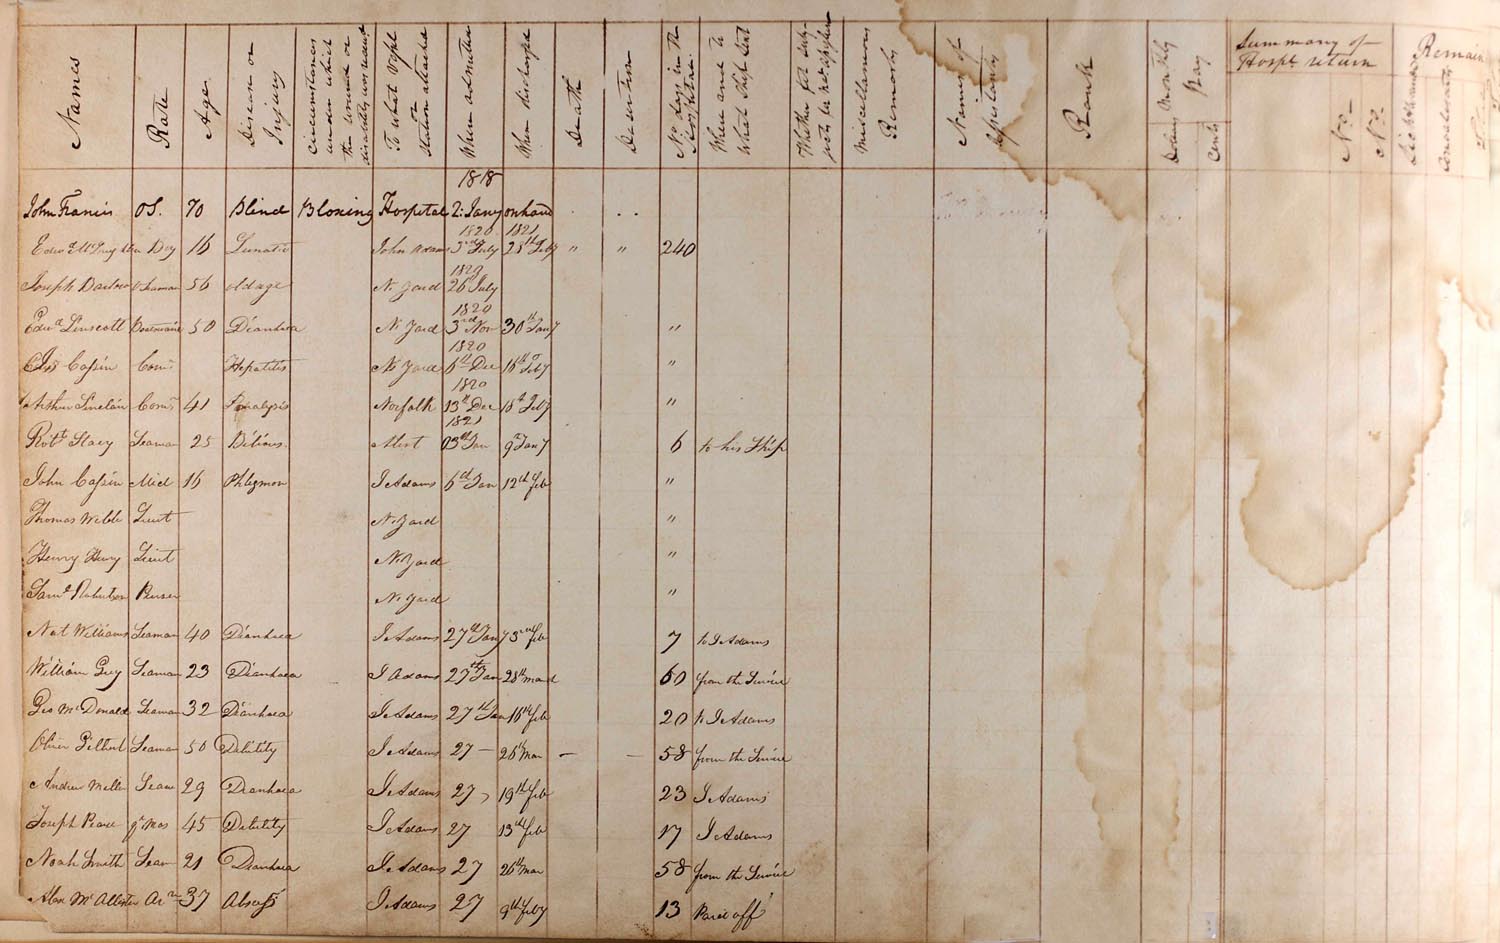 Names Rate Age Disease or Injury Circumstances under which the wound or disability was recd To what Vessel or Station attached When admitted When dischargd Death Desertion No. days in the Hospital Where and to what Ship sent Whether fit duty Miscellaneous Remarks Names of Rank Monthly Pay Summary of Hospl. return Remain
Cents No. No.
1818
John Francis OS. 70 Blind Bloxing Hospital 2: Jany on hand
1820 1821
boy 16 Lunatic John Adams 3rd July 28th Feby " " 240
1820
Joseph Seaman 56 old age N. Yard 26 July
1820
Edwd Linscott 50 Diarrhoea N. Yard 3rd Nov 30th Jany "
1820
Cassin Comr Hepatitis N. Yard 6th Dec 16th Feby "
1820
Arthur Sinclair Comr 41 Paralysis Norfolk 13th Dec 18th Feby "
1821
Robt Stacy Seaman 25 Bilious Alert 03d Jan 9th Jany 6 to his Ship
John Cassin Mid 16 Phlegmon J. Adams 6th Jan 12th Feb "
Thomas Webb Lieut N. Yard "
Henry Henry Lieut N. Yard "
Saml Robertson Purser N. Yard "
Nat Williams Seaman 40 Diarrhaea J. Adams 27th Jany 3rd Feb 7 to J. Adams
William Guy Seaman 23 Diarrhaea J. Adams 27th Jan 28th March 60 from the Service
Geo McDonald Seaman 32 Diarrhaea J. Adams 27th Jan 16th Feb 20 to J. Adams
Oliver Seaman 50 Debility J. Adams 27 — 26th Mar — — 58 from the Service
Andrew Miller Seam 29 Diarrhaea J. Adams 27 19th Feb 23 J. Adams
Joseph Pearce qr Mas 45 Debility J. Adams 27 13th Feb 17 J. Adams
Noah Smith Seam 21 Diarrhaea J. Adams 27 26th Mar 58 from the Service
Alex McAllister 37 Absess J. Adams 27 9th Feby 13 Paid off